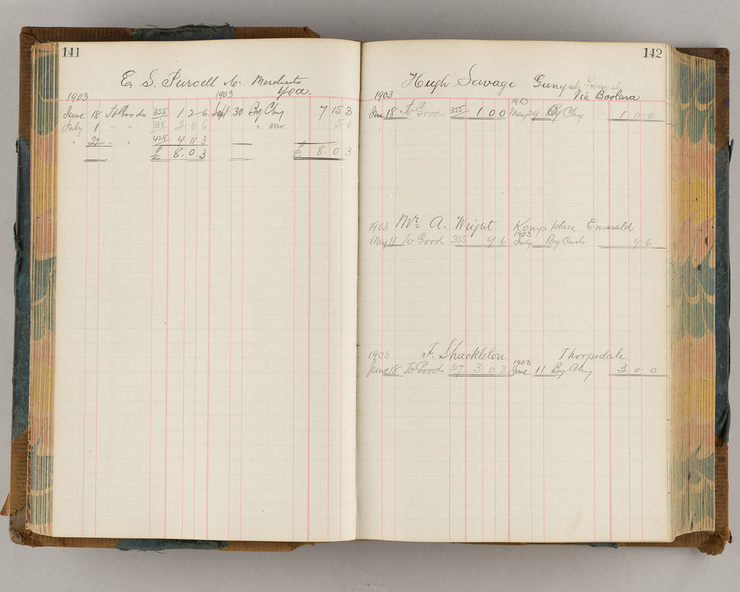 141
E S. Purcell & Co. Merchants
Yea.
1903 1903
June 18 To Goods 355 1 2 6 Sept 30 By Chq 7 15 3
July 1 " " 2 6 6 " 5 0
" 22 " " 425 4 11 3
£ 8. 0 3 £ 8. 0 3
142
Hugh Savage Gunyah
Via Boolara
1903 1903
18 To Goods 355 1 0 0 May 29 By Chq 1 0 0
1903 Mr A. Wright Place Emerald
1903
May 11 To Goods 355 9 6 July By Cash 9 6
1903 F. Shackleton Thorpdale
1903
June 18 To Goods 37 3 0 3 June 11 By Chq 3 0 0